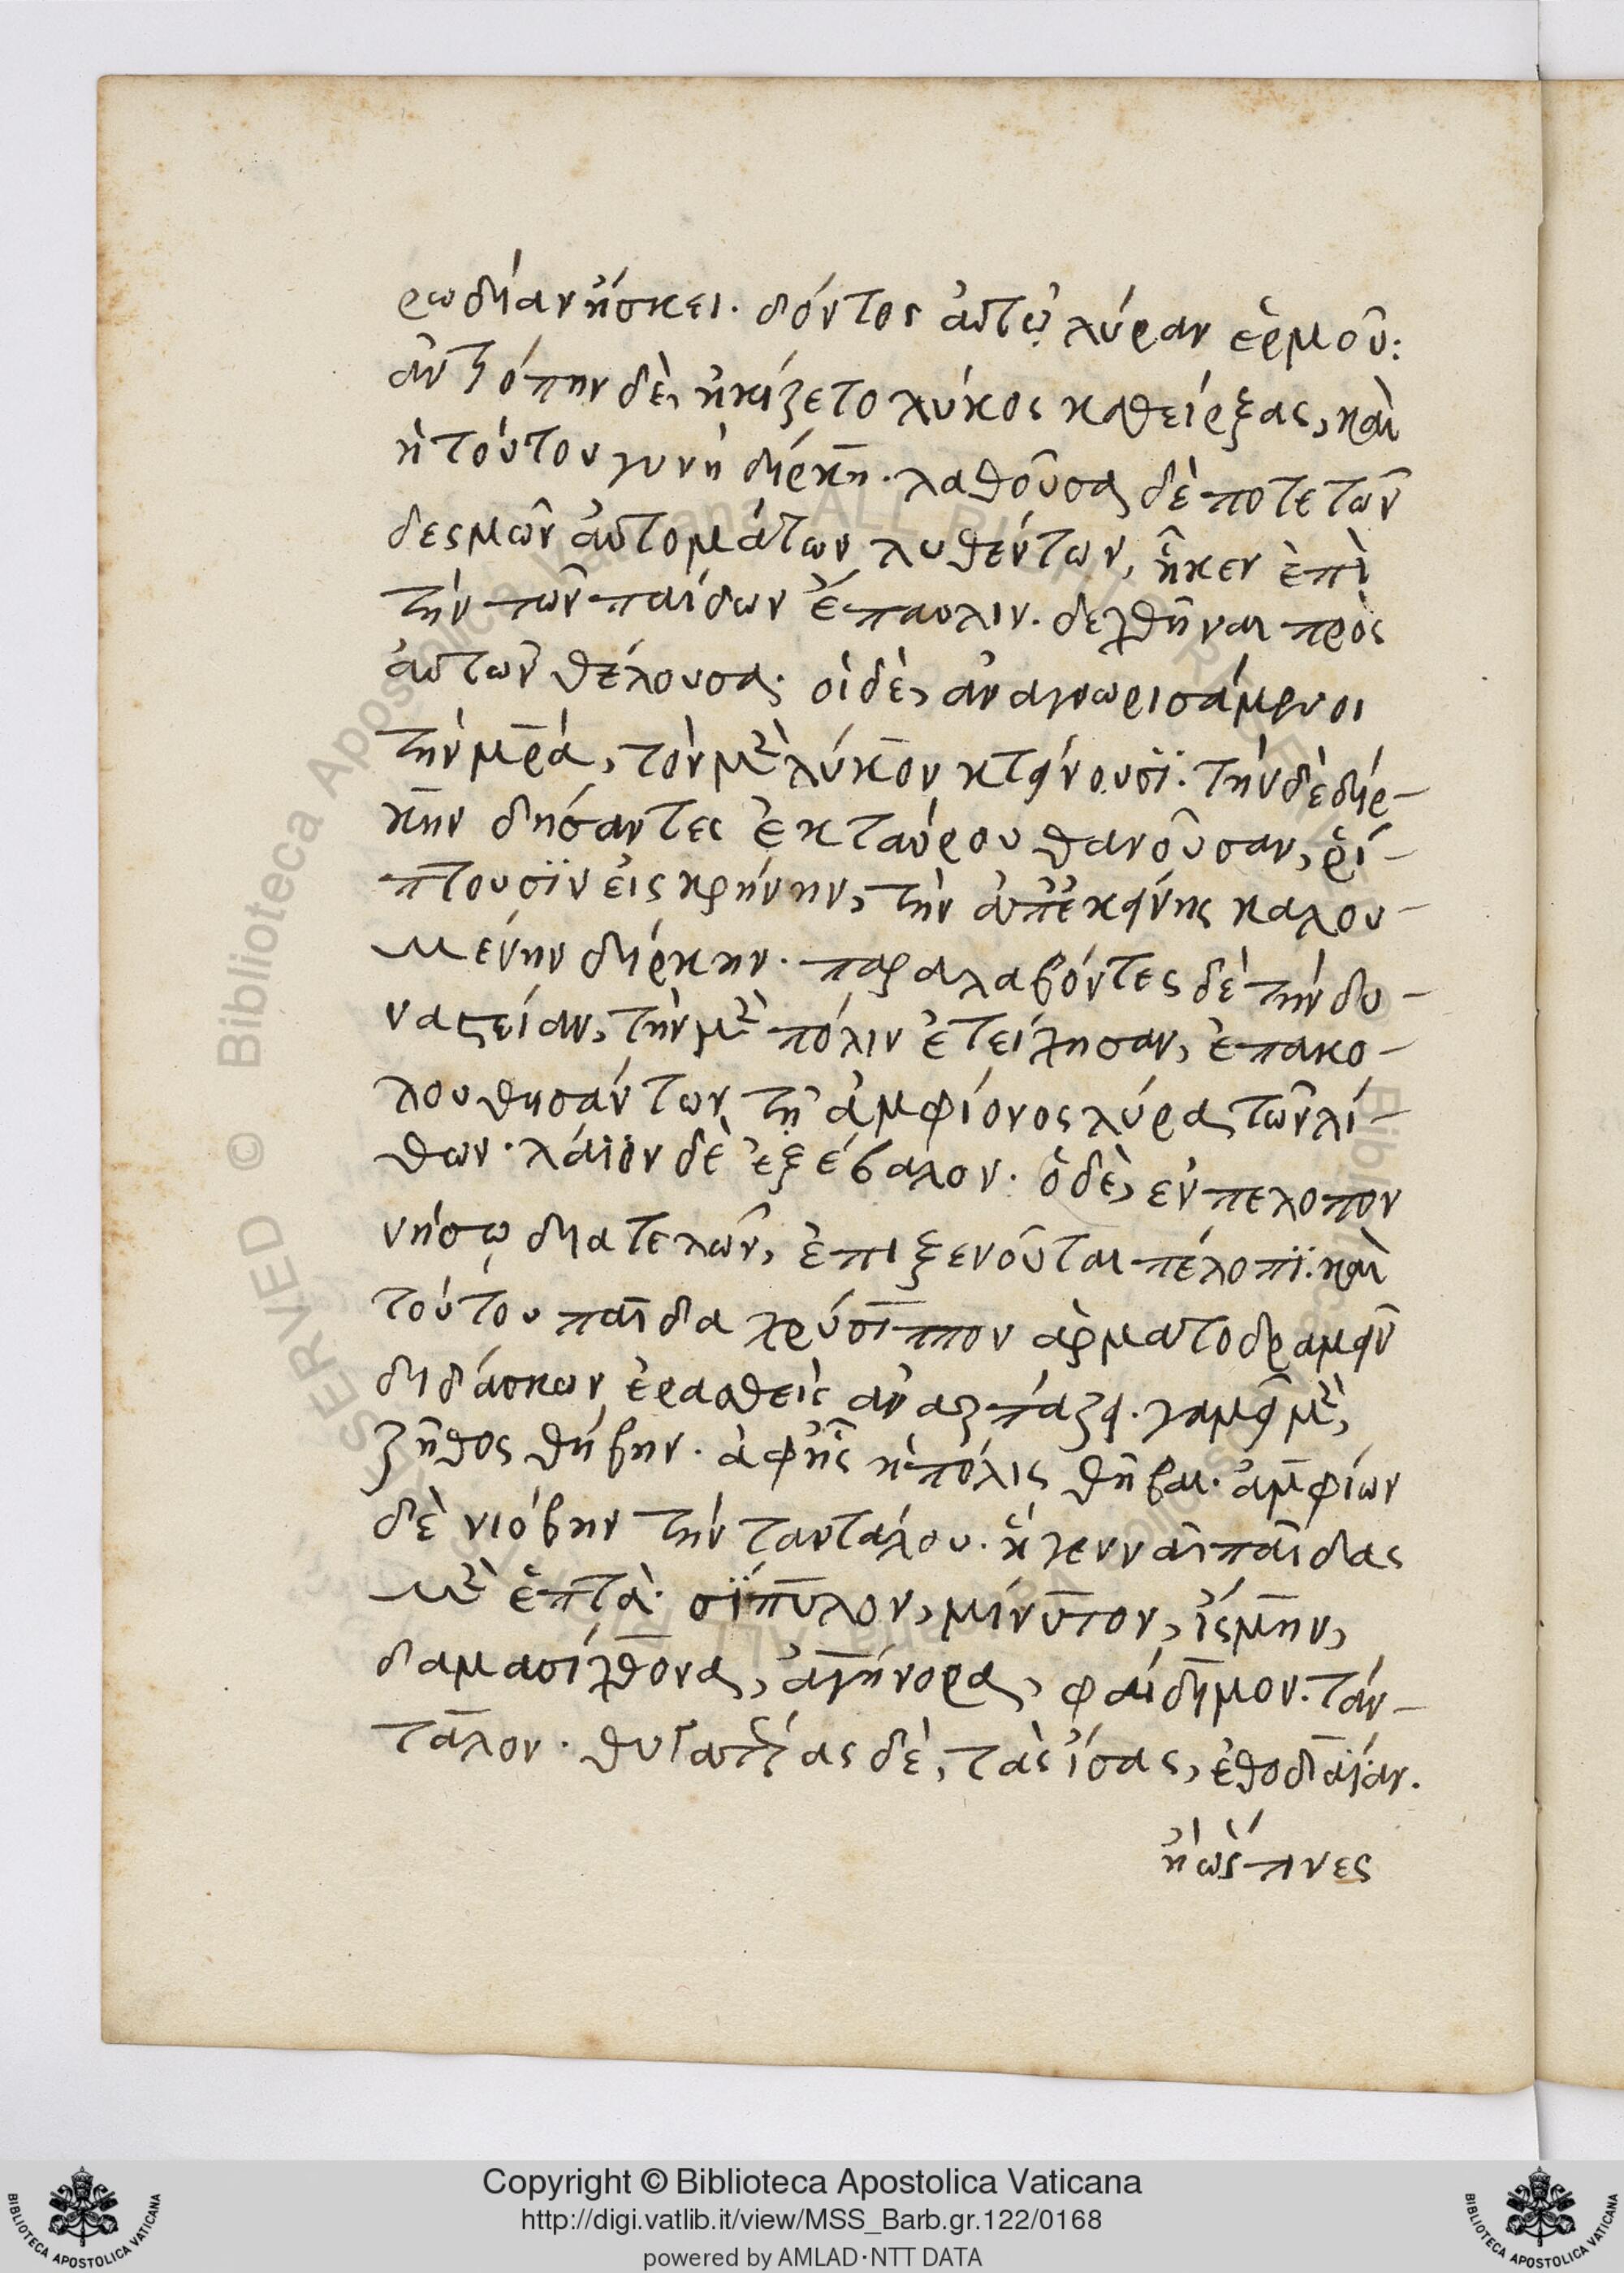 ρωδίαν ἤσκει. δόντος αὐτῷ λύραν ἑρμοῦ:
ἀντιόπην δὲ, ἠκίζετο λύκος καθείρξας, καὶ
ἡ τούτου γυνὴ δίρκη. λαθοῦσα δέ ποτε τῶν
δεσμῶν αὐτομάτων λυθέντων, ἧκεν ἐπὶ
τὴν τῶν παίδων ἔπαυλιν. δεχθῆναι πρὸς
αὐτῶν θέλουσα. οἱ δὲ, ἀναγνωρισάμενοι
τὴν μρα, τὸν μὲν λύκον κτείνουσϊ. τὴν δὲ δίρ-
κην δήσαντες ἐκ ταύρου θανοῦσαν, ῥί-
πτουσϊν εἰς κρήνην, τὴν ἀπ' ἐκείνης καλου-
μένην δίρκην. παραλαβόντες δὲ τὴν δυ-
ναστείαν, τὴν μὲν πόλιν ἐτείχησαν, ἐπακο-
λουθησάντων τῇ ἀμφίονος λύρα τῶν λί-
θων. λάϊον δὲ ἐξέβαλον. ὁ δὲ, ἐν πελοπον
νήσῳ διατελῶν, ἐπιξενοῦται πέλοπϊ. καὶ
τούτου παῖδα χρύσιππον ἁρματοδραμεῖν
διδάσκων ἐρασθεὶς ἀναρπάζει. γαμεῖ μὲν,
ζῆθος θήβην. ἀφ' ἧς ἡ πόλις θῆβαι. ἀμφίων
δὲ νιόβην τὴν ταντάλου. ἣ γεννᾶι παῖδας
μὲν ἑπτὰ. σΐπυλον, μίνυτον, ἴσμην,
δαμασίχθονα, ἀγήνορα, φαίδιμον. τάν-
ταλον. θυγατέρας δὲ, τὰς ἴσας, ἐθοδαΐαν.
ἢ ὥς τινες
Copyright © Biblioteca Apostolica Vaticana
http://digi.vatlib.it/view/MSS_Barb.gr.122/0168
powered by AMLAD·NTT DATA
BIBLIOTECA APOSTOLICA VATICANA
BIBLIOTECA APOSTOLICA VATICANA